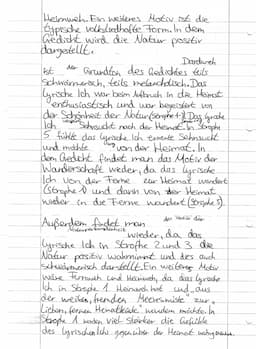 Heimweh. Ein weiteres Motiv ist die
typische volksliedhafte Form. In dem
Gedicht wird die Natur positiv
dargestellt.
Dadurch
ist der Grundton des Gedichtes teils
schwärmerisch, teils melancholisch. Das
lyrische Ich war beim Aufbruch in die Heimat
enthusiastisch und war begeistert von
der Schönheit der Natur (Strophe 1). Das lyrische
Ich Sehnsucht nach der Heimat. In Strophe
5 fühlt das lyrische Ich erneute Sehnsucht
und möchte von der Heimat. In
dem Gedicht findet man das Motiv der
Wanderschaft wieder, da das lyrische
Ich von der Ferne zur Heimat wandert
(Strophe 1) und dann von der Heimat
wieder in die Ferne wandert (Strophe 5).
Außerdem findet man das Motiv der
wieder, da das
lyrische Ich in Strophe 2 und 3 die
Natur positiv wahrnimmt und dies auch
schwärmerisch darstellt. Ein weiteres Motiv
wäre Fernweh und Heimweh, da das lyrische
Ich in Strophe 1 Heimweh hat und „aus
der weiten, fremden Meereswüste" zur
"Lieben, fernen Heimatküste" wandern möchte. In
Strophe 1 viel stärker die Gefühle
des lyrischen Ichs gegenüber der Heimat